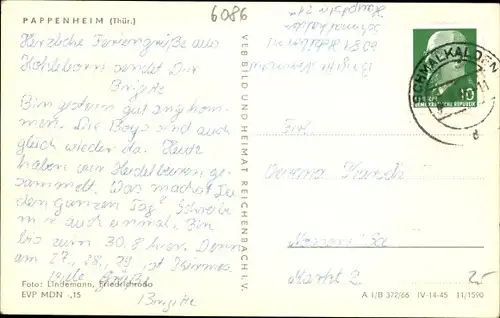 PAPPENHEIM (Thür.)
6086
Herzliche Feriengrüße aus
Hohleborn sendet Dir
Brigitte
Bin gestern gut angekom-
men. Die Boys sind auch
gleich wieder da. Heute
haben wir Heidelbeeren ge-
sammelt. Was machst Du
den ganzen Tag? Schreibe
mir auch einmal. Bin
bis zum 30.8 hier. Denn
am 27., 28., 29. ist Kirmes
Viele Grüße
Brigitte
Foto: Lindemann, Friedrichroda
EVP MDN -,15
VEB BILD UND HEIMAT REICHENBACH I. V.
Brigitte
6081
Schmalkalden
SCHMALKALDEN
10
DEUTSCHE DEMOKRATISCHE REPUBLIK
Frl.
Markt 2
A I/B 372/66 IV-14-45 11/1590